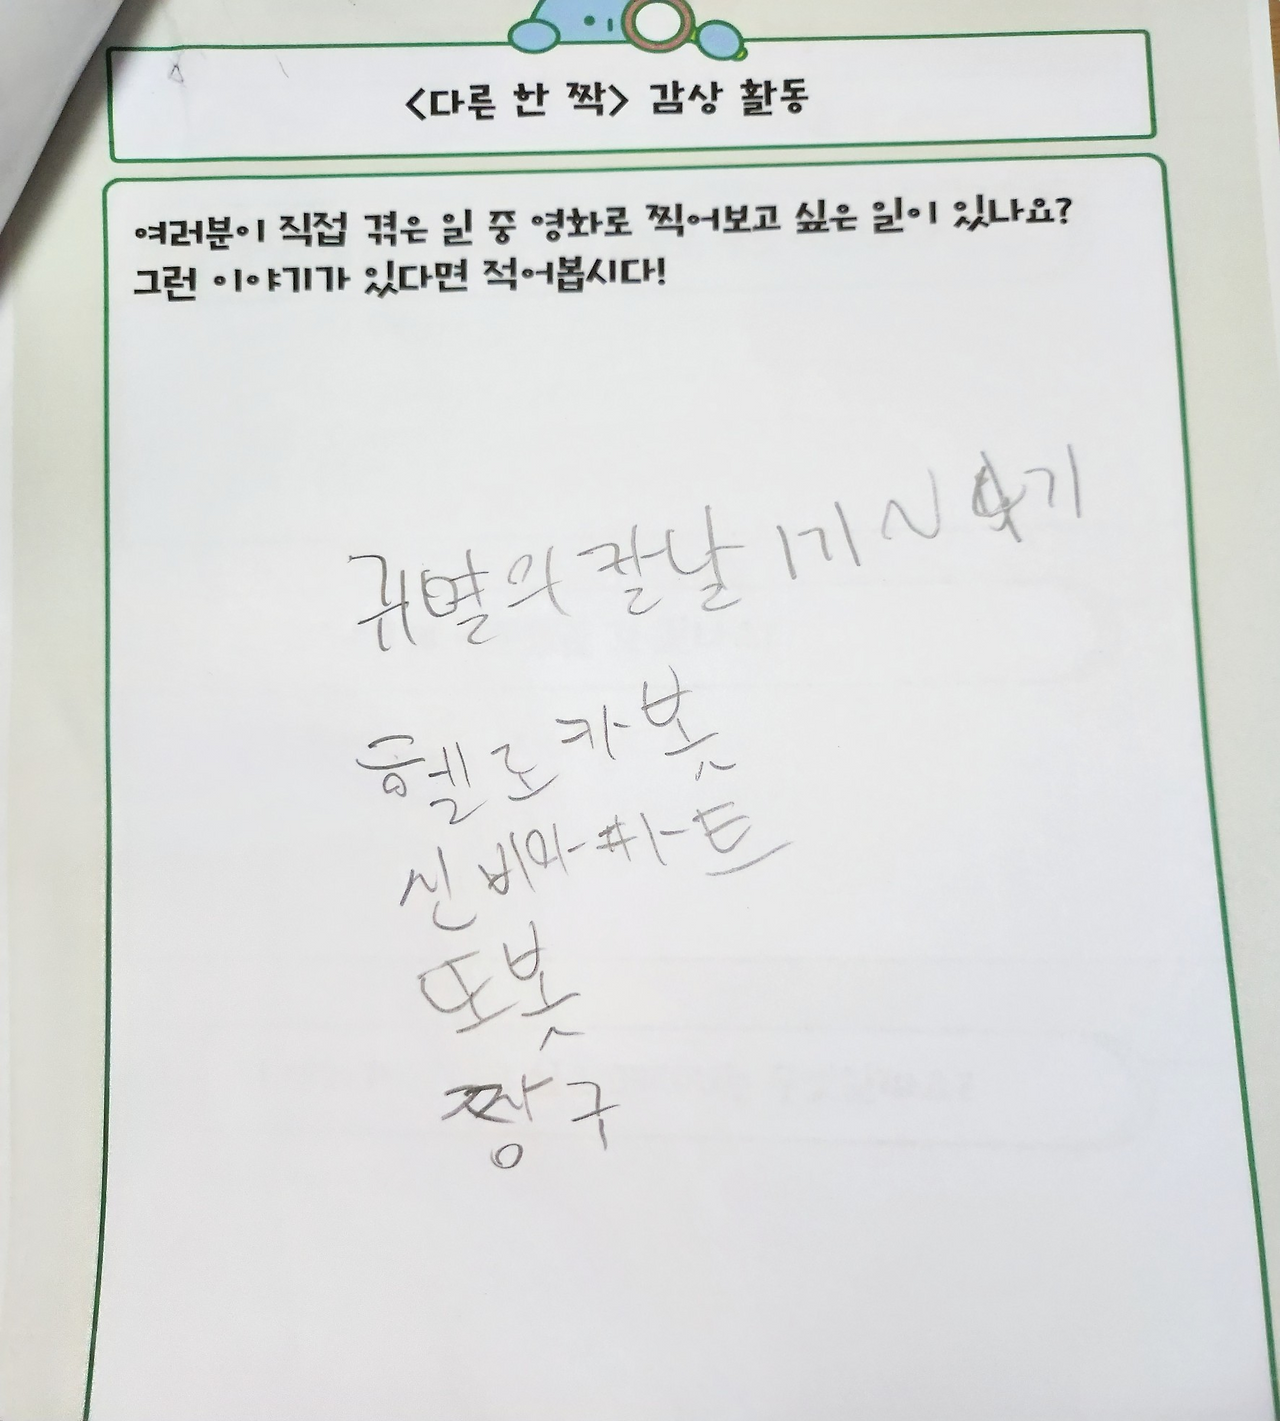 <다른 한 짝> 감상 활동
여러분이 직접 겪은 일 중 영화로 찍어보고 싶은 일이 있나요?
그런 이야기가 있다면 적어봅시다!
귀멸의 칼날 1기 ~ 4기
헬로카봇
신비아파트
또봇
짱구